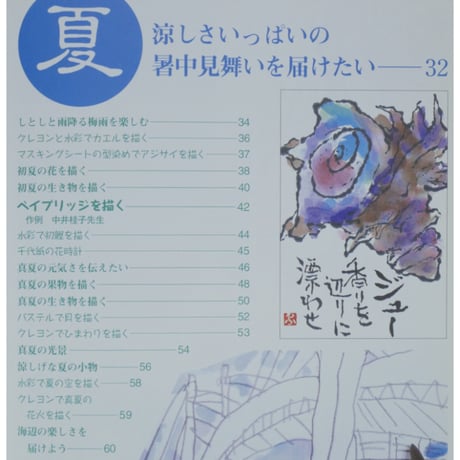 夏
涼しさいっぱいの
暑中見舞いを届けたい——32
しとしと雨降る梅雨を楽しむ——34
クレヨンと水彩でカエルを描く——36
マスキングシートの型染めでアジサイを描く——37
初夏の花を描く——38
初夏の生き物を描く——40
ベイブリッジを描く——42
作例 中井桂子先生
水彩で初鰹を描く——44
千代紙の花時計——45
真夏の元気さを伝えたい——46
真夏の果物を描く——48
真夏の生き物を描く——50
パステルで貝を描く——52
クレヨンでひまわりを描く——53
真夏の光景——54
涼しげな夏の小物——56
水彩で夏の空を描く——58
クレヨンで真夏の
花火を描く——59
海辺の楽しさを
届けよう——60
ジュー
香りを
辺りに
漂わせ